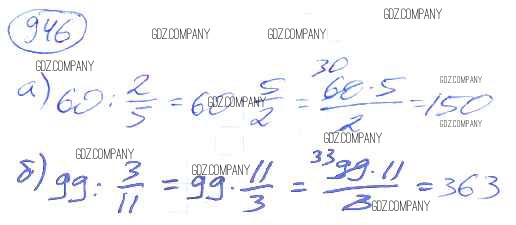 946
а) 60 : 2/5 = 60 · 5/2 = 30 60·5/2 = 150
б) 99 : 3/11 = 99 · 11/3 = 33 99·11/3 = 363
GDZ.COMPANY
GDZ.COMPANY
GDZ.COMPANY
GDZ.COMPANY
GDZ.COMPANY
GDZ.COMPANY
GDZ.COMPANY
GDZ.COMPANY
GDZ.COMPANY
GDZ.COMPANY
GDZ.COMPANY